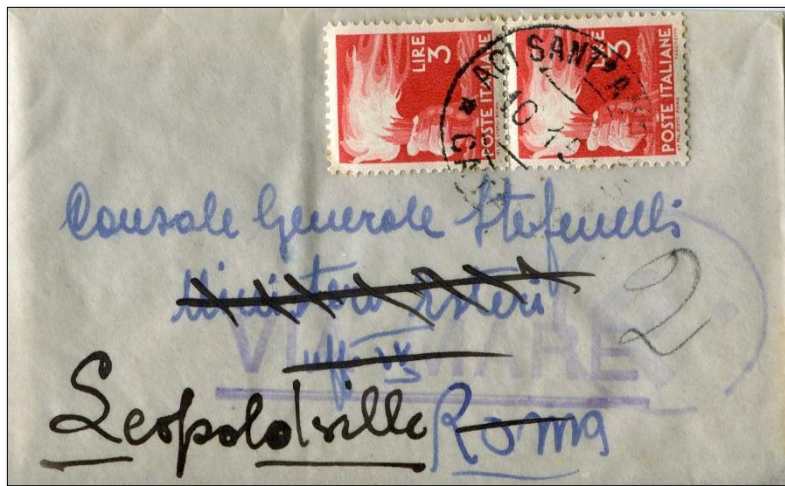 LIRE 3
POSTE ITALIANE
LIRE 3
POSTE ITALIANE
ACI SANT'A
10
Console Generale Stefenelli
Ministero Esteri
uff. IV
VIA MARE
2
Leopoldville Roma